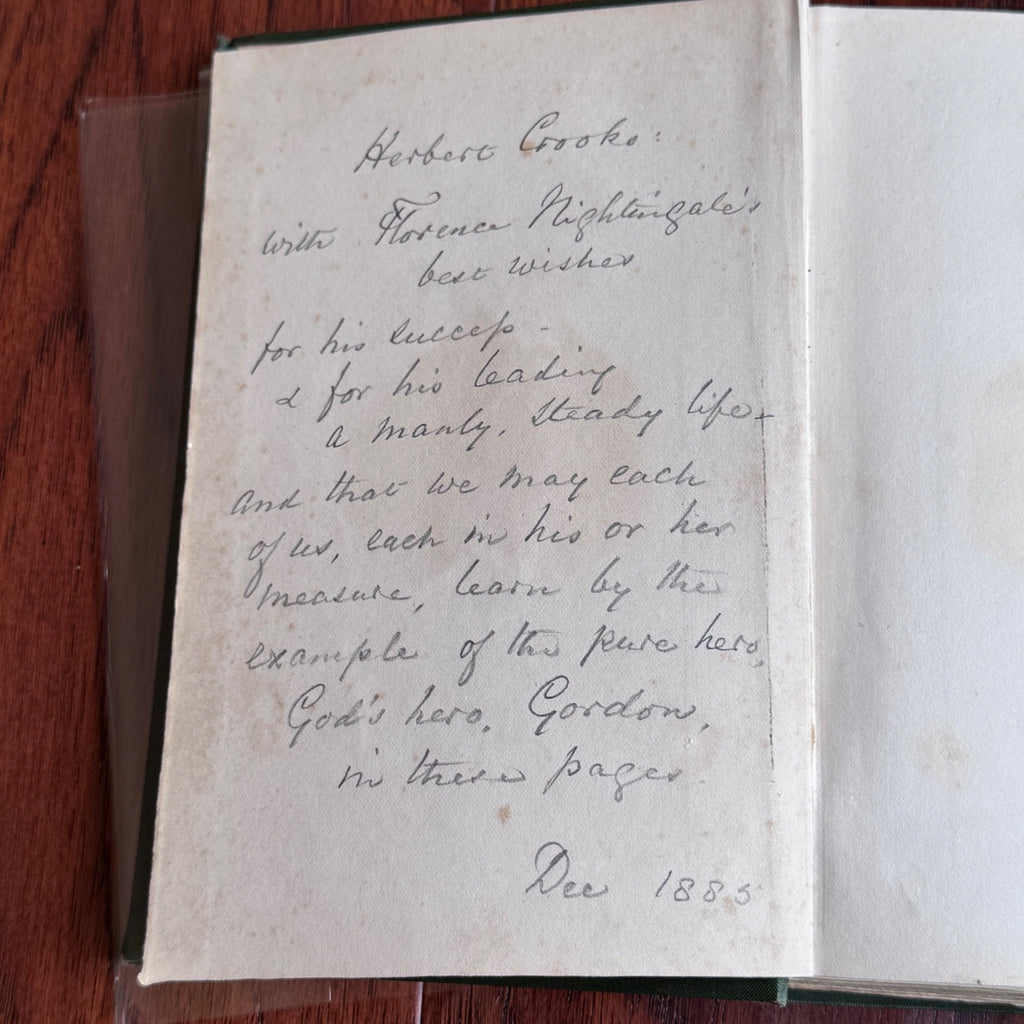 Herbert Crooks:
with Florence Nightingale's
best wishes
for his success -
& for his leading
a manly, steady life -
and that we may each
of us, each in his or her
measure, learn by the
example of the pure hero,
God's hero, Gordon,
in these pages
Dec 1885